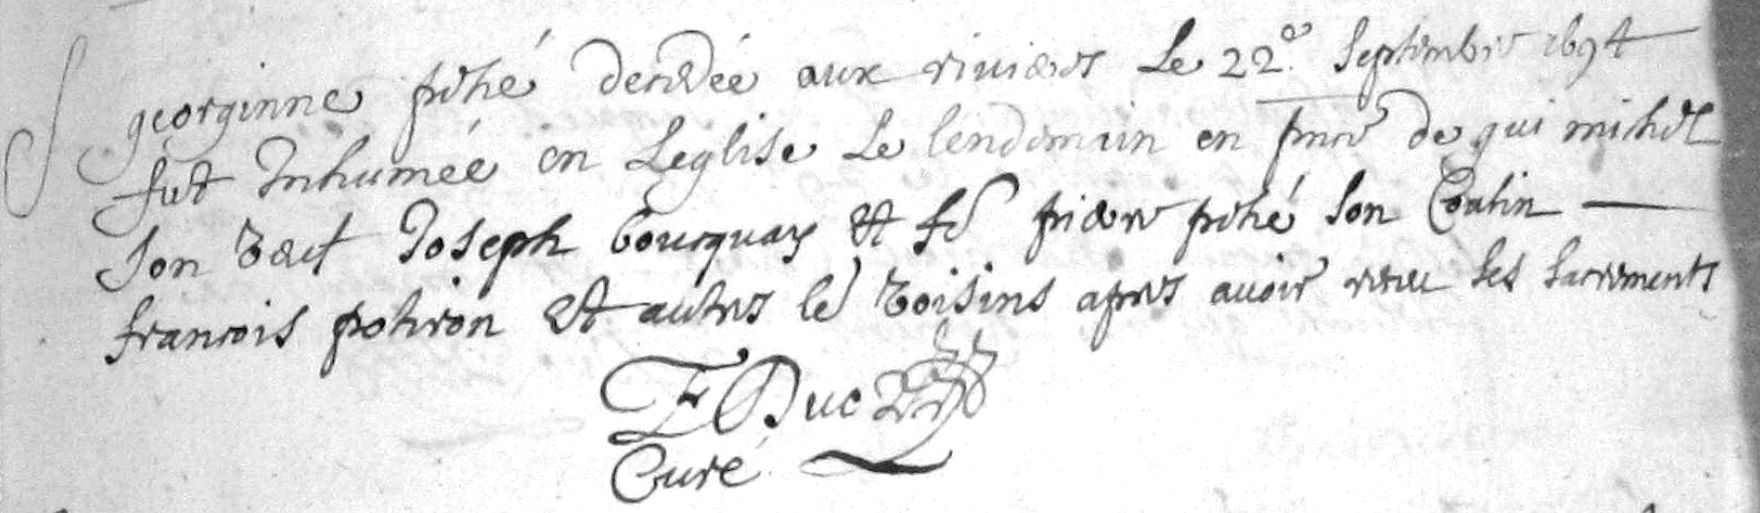 georginne piché decedée aux rivieres Le 22e Septembre 1694
fut Inhumée en Leglise Le lendemain en pnce de qui michel
Son Joseph bourquay et fs pierre piché Son Cousin
francois potiron et autres ses voisins apres avoir receu les sacrements
F Duc
Curé